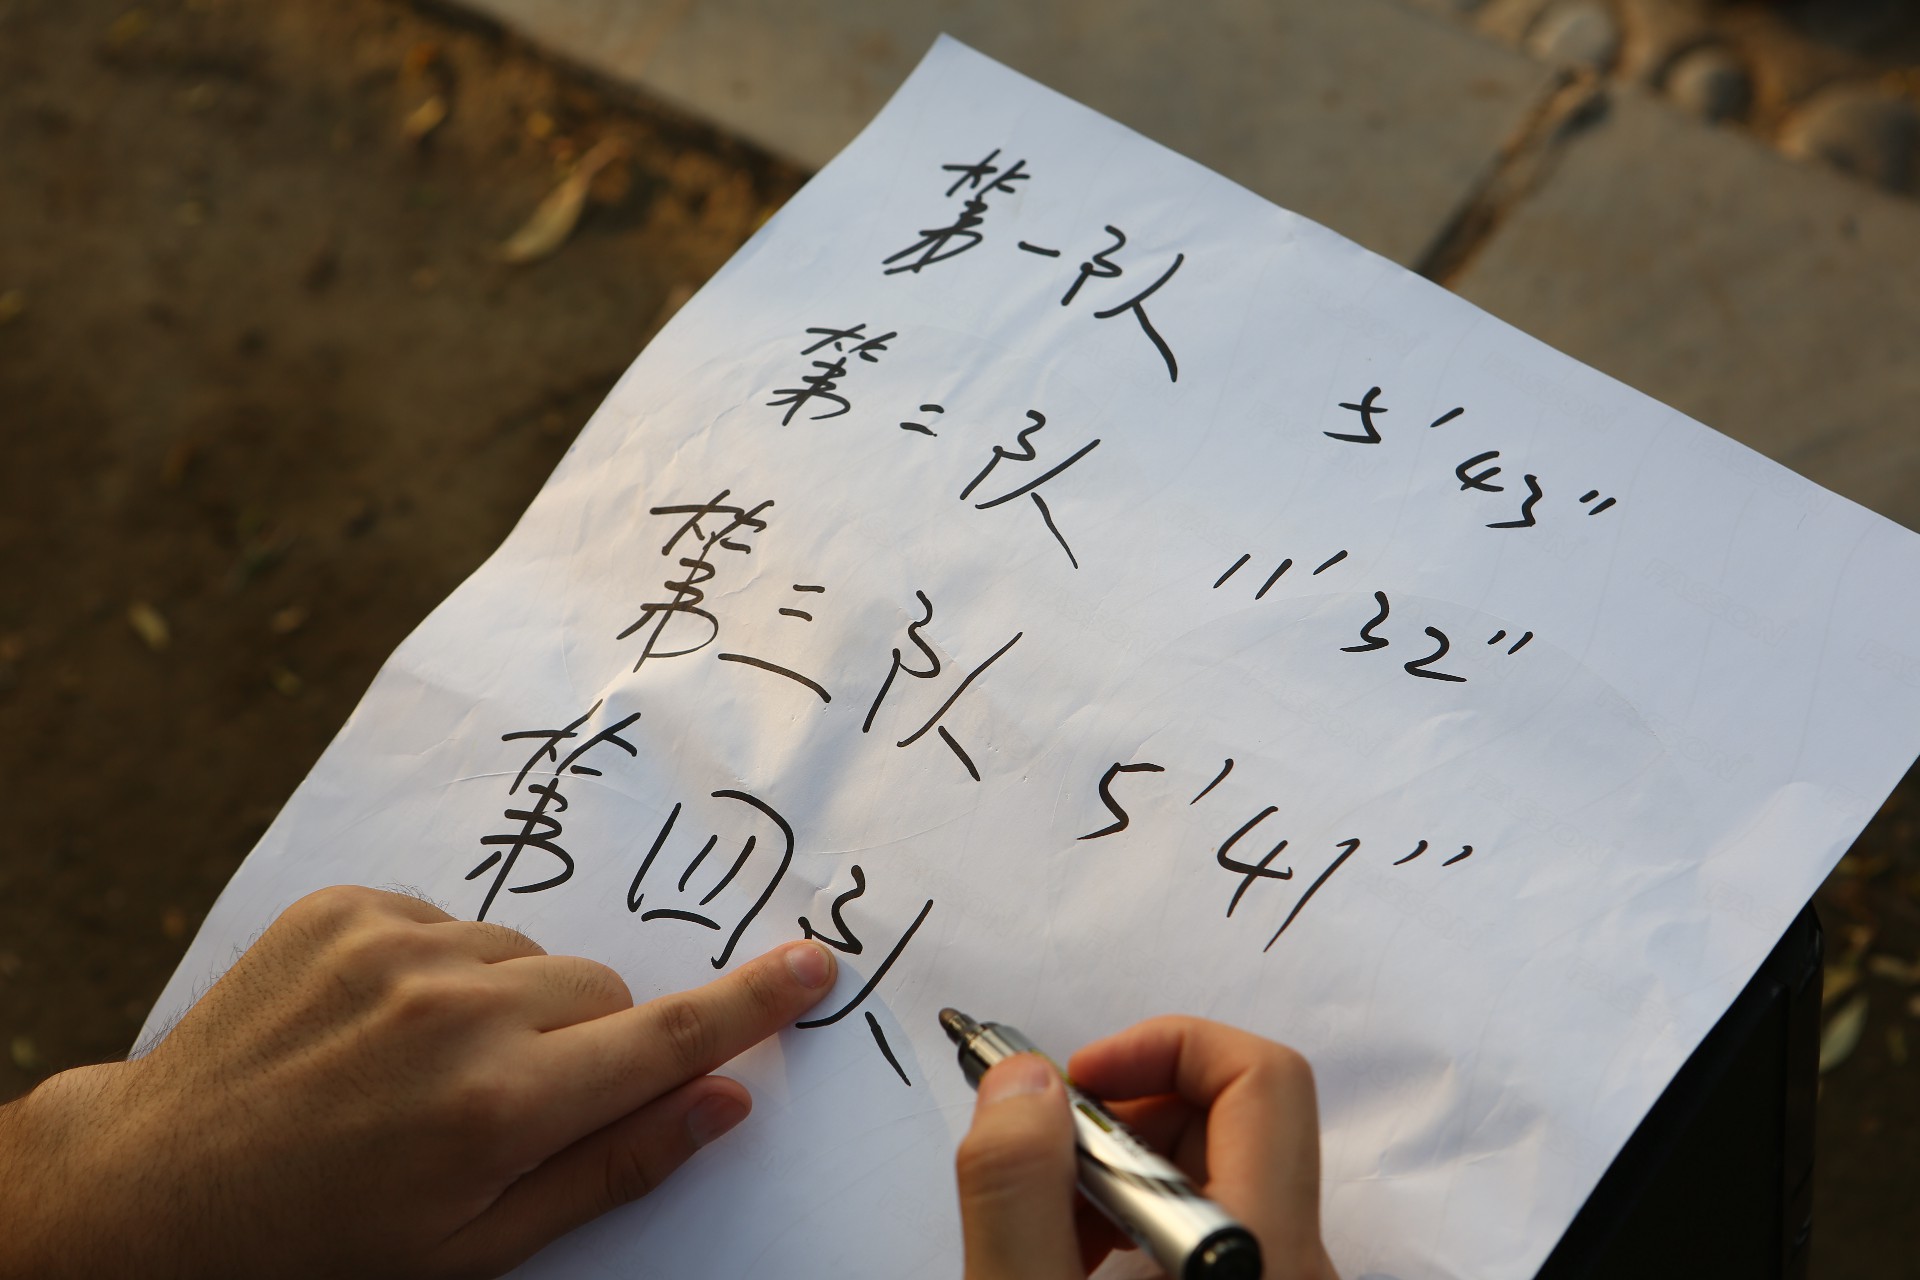 第一队 5'43"
第二队 11'32"
第三队 5'41"
第四队